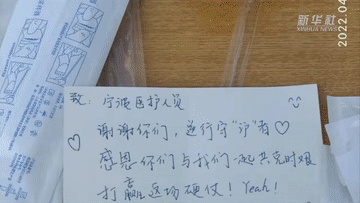 新华社
XINHUA NEWS
2022.04
致：宁波医护人员
谢谢你们，逆行守“沪”者
感恩你们与我们一起共克时艰
打赢这场硬仗！Yeah!